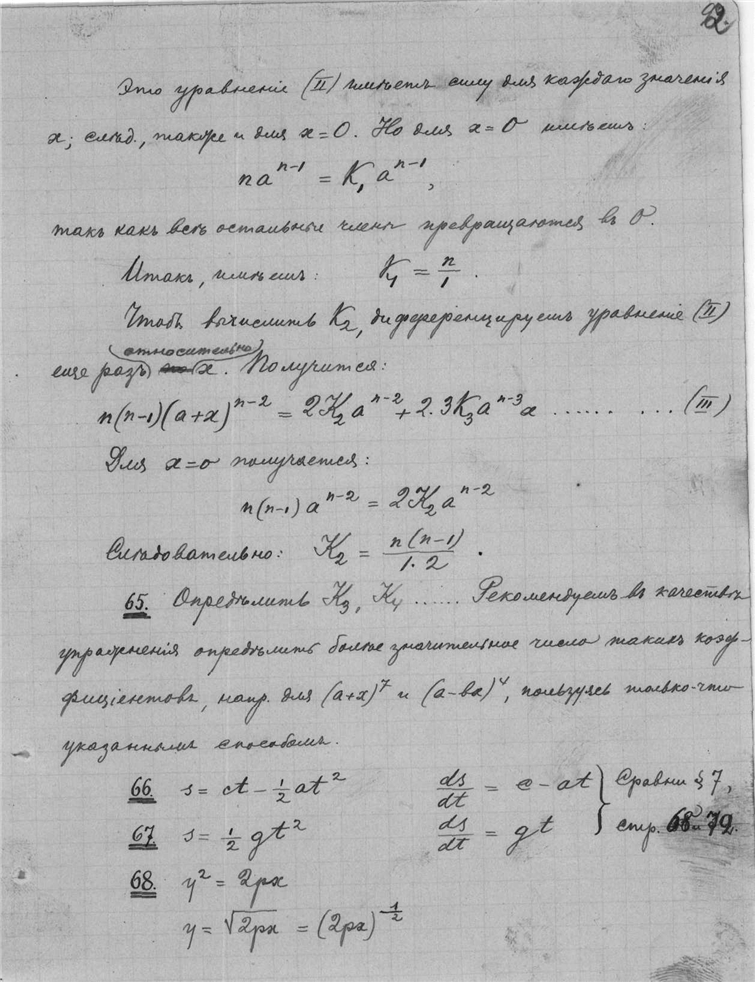 92.
Это уравненіе (II) имѣетъ силу для каждаго значенія
x; слѣд., также и для x=0. Но для x=0 имѣемъ:
na^{n-1} = K_1 a^{n-1},
такъ какъ всѣ остальные члены превращаются въ 0.
Итакъ, имѣемъ: K_1 = n/1.
Чтобъ вычислить K_2, дифференцируемъ уравненіе (II)
относительно
еще разъ x. Получится:
n(n-1)(a+x)^{n-2} = 2K_2 a^{n-2} + 2.3K_3 a^{n-3} x ...... ... (III)
Для x=0 получается:
n(n-1) a^{n-2} = 2K_2 a^{n-2}
Слѣдовательно: K_2 = n(n-1)/1.2.
65. Опредѣлить K_3, K_4 ...... Рекомендуемъ въ качествѣ
упражненія опредѣлить болѣе значительное число такихъ коэф-
фиціентовъ, напр. для (a+x)^7 и (a-bx)^4, пользуясь только-что
указаннымъ способомъ.
66. s = ct - 1/2 at^2 ds/dt = c - at } Сравни § 7,
67. s = 1/2 gt^2 ds/dt = gt } стр.
68. y^2 = 2px
y = √2px = (2px)^{1/2}